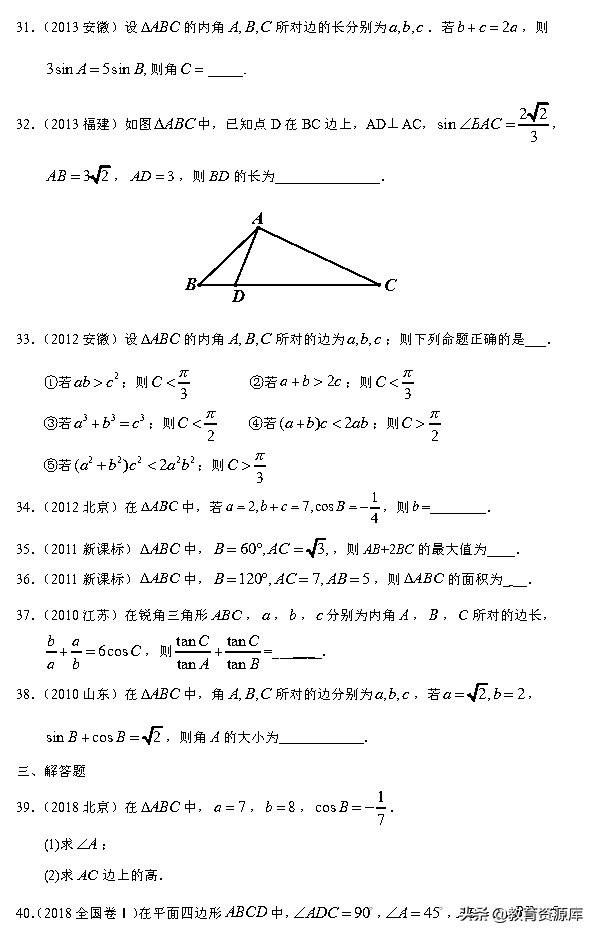 31．（2013安徽）设ΔABC的内角A,B,C所对边的长分别为a,b,c．若b+c=2a，则
3sin A=5sin B,则角C=_____.
32．（2013福建）如图ΔABC中，已知点D在BC边上，AD⊥AC，sin∠BAC=2√2/3，
AB=3√2，AD=3，则BD的长为_______________．
A
B
D
C
33．（2012安徽）设ΔABC的内角A,B,C所对的边为a,b,c；则下列命题正确的是___．
①若ab>c²；则C<π/3 ②若a+b>2c；则C<π/3
③若a³+b³=c³；则C<π/2 ④若(a+b)c<2ab；则C>π/2
⑤若(a²+b²)c²<2a²b²；则C>π/3
34．（2012北京）在ΔABC中，若a=2,b+c=7,cosB=−1/4，则b=________．
35．（2011新课标）ΔABC中，B=60°,AC=√3,，则AB+2BC的最大值为____．
36．（2011新课标）ΔABC中，B=120°,AC=7,AB=5，则ΔABC的面积为___．
37．（2010江苏）在锐角三角形ABC，a，b，c分别为内角A，B，C所对的边长，
b/a+a/b=6cosC，则tanC/tanA+tanC/tanB=_______．
38．（2010山东）在ΔABC中，角A,B,C所对的边分别为a,b,c，若a=√2,b=2，
sin B+cos B=√2，则角A的大小为____________．
三、解答题
39．（2018北京）在ΔABC中，a=7，b=8，cosB=−1/7．
(1)求∠A；
(2)求AC边上的高．
40．（2018全国卷Ⅰ）在平面四边形ABCD中，∠ADC=90°，∠A=45°，
头条@教育资源库